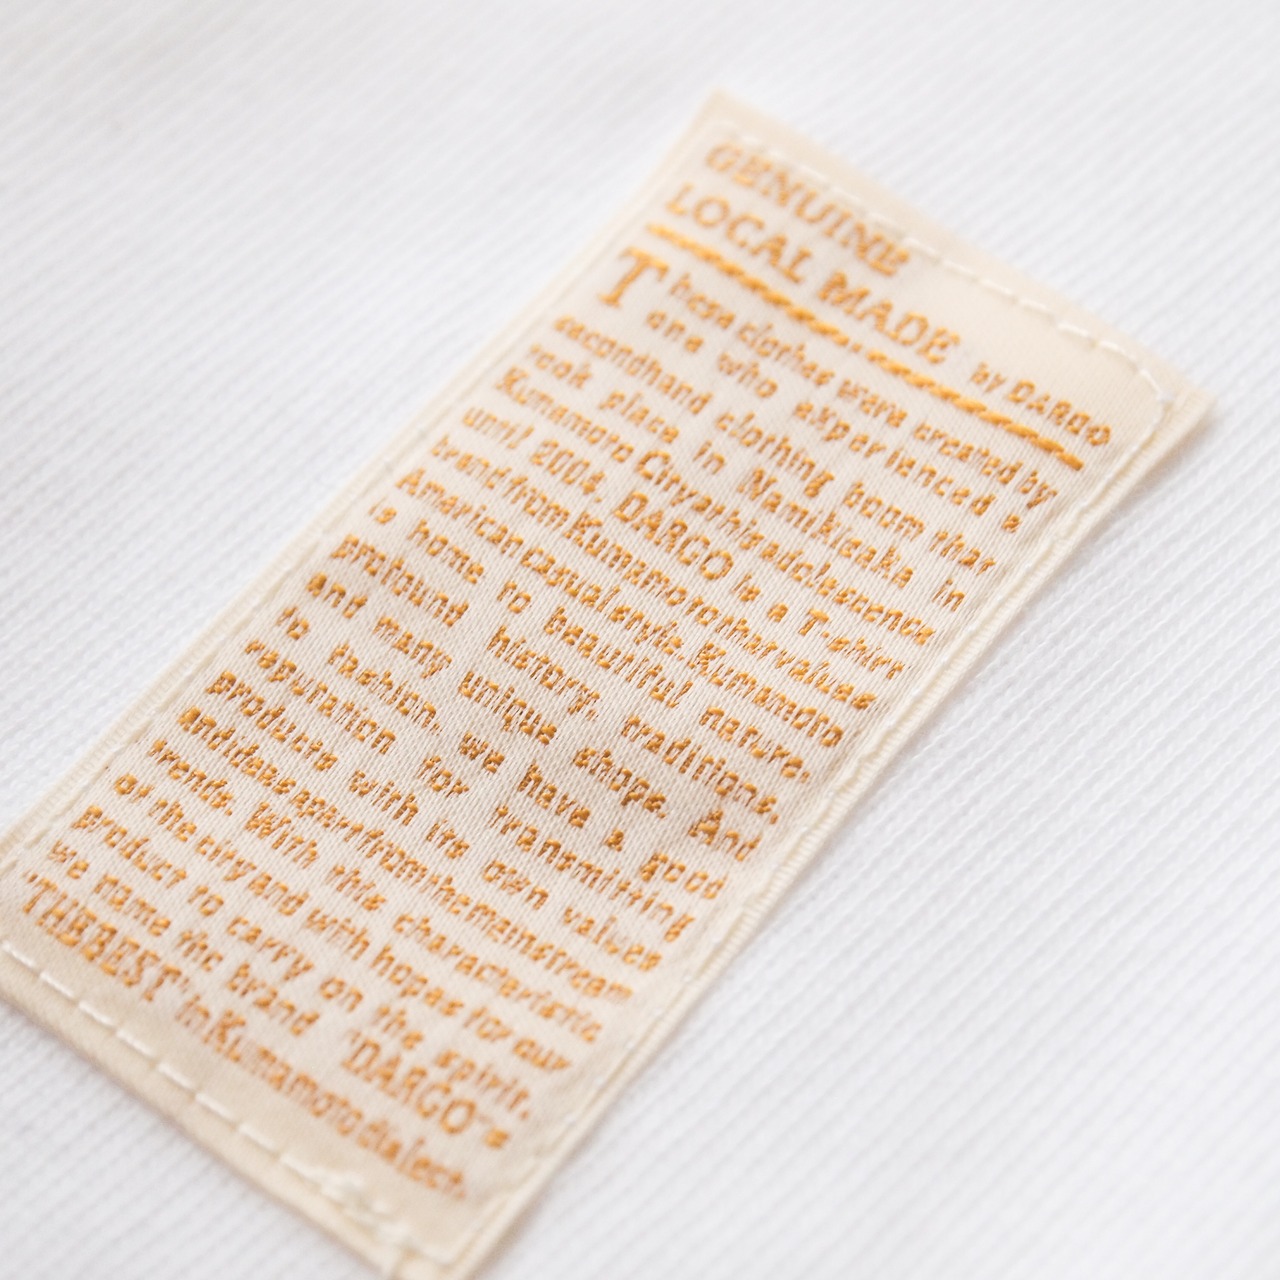 GENUINE
LOCAL MADE by DARGO
These clothes were created by
one who experienced a
secondhand clothing boom that
took place in Namikisaka in
Kumamoto City at his adolescence
until 2004. DARGO is a T-shirt
brand from Kumamoto that values
American casual style. Kumamoto
is home to beautiful nature,
profound history, traditions,
and many unique shops. And
to fashion, we have a good
reputation for transmitting
products with its own values
and ideas apart from the mainstream
trends. With this characteristic
of the city and with hopes for our
product to carry on the spirit,
we name the brand "DARGO"=
"THE BEST" in Kumamoto dialect.